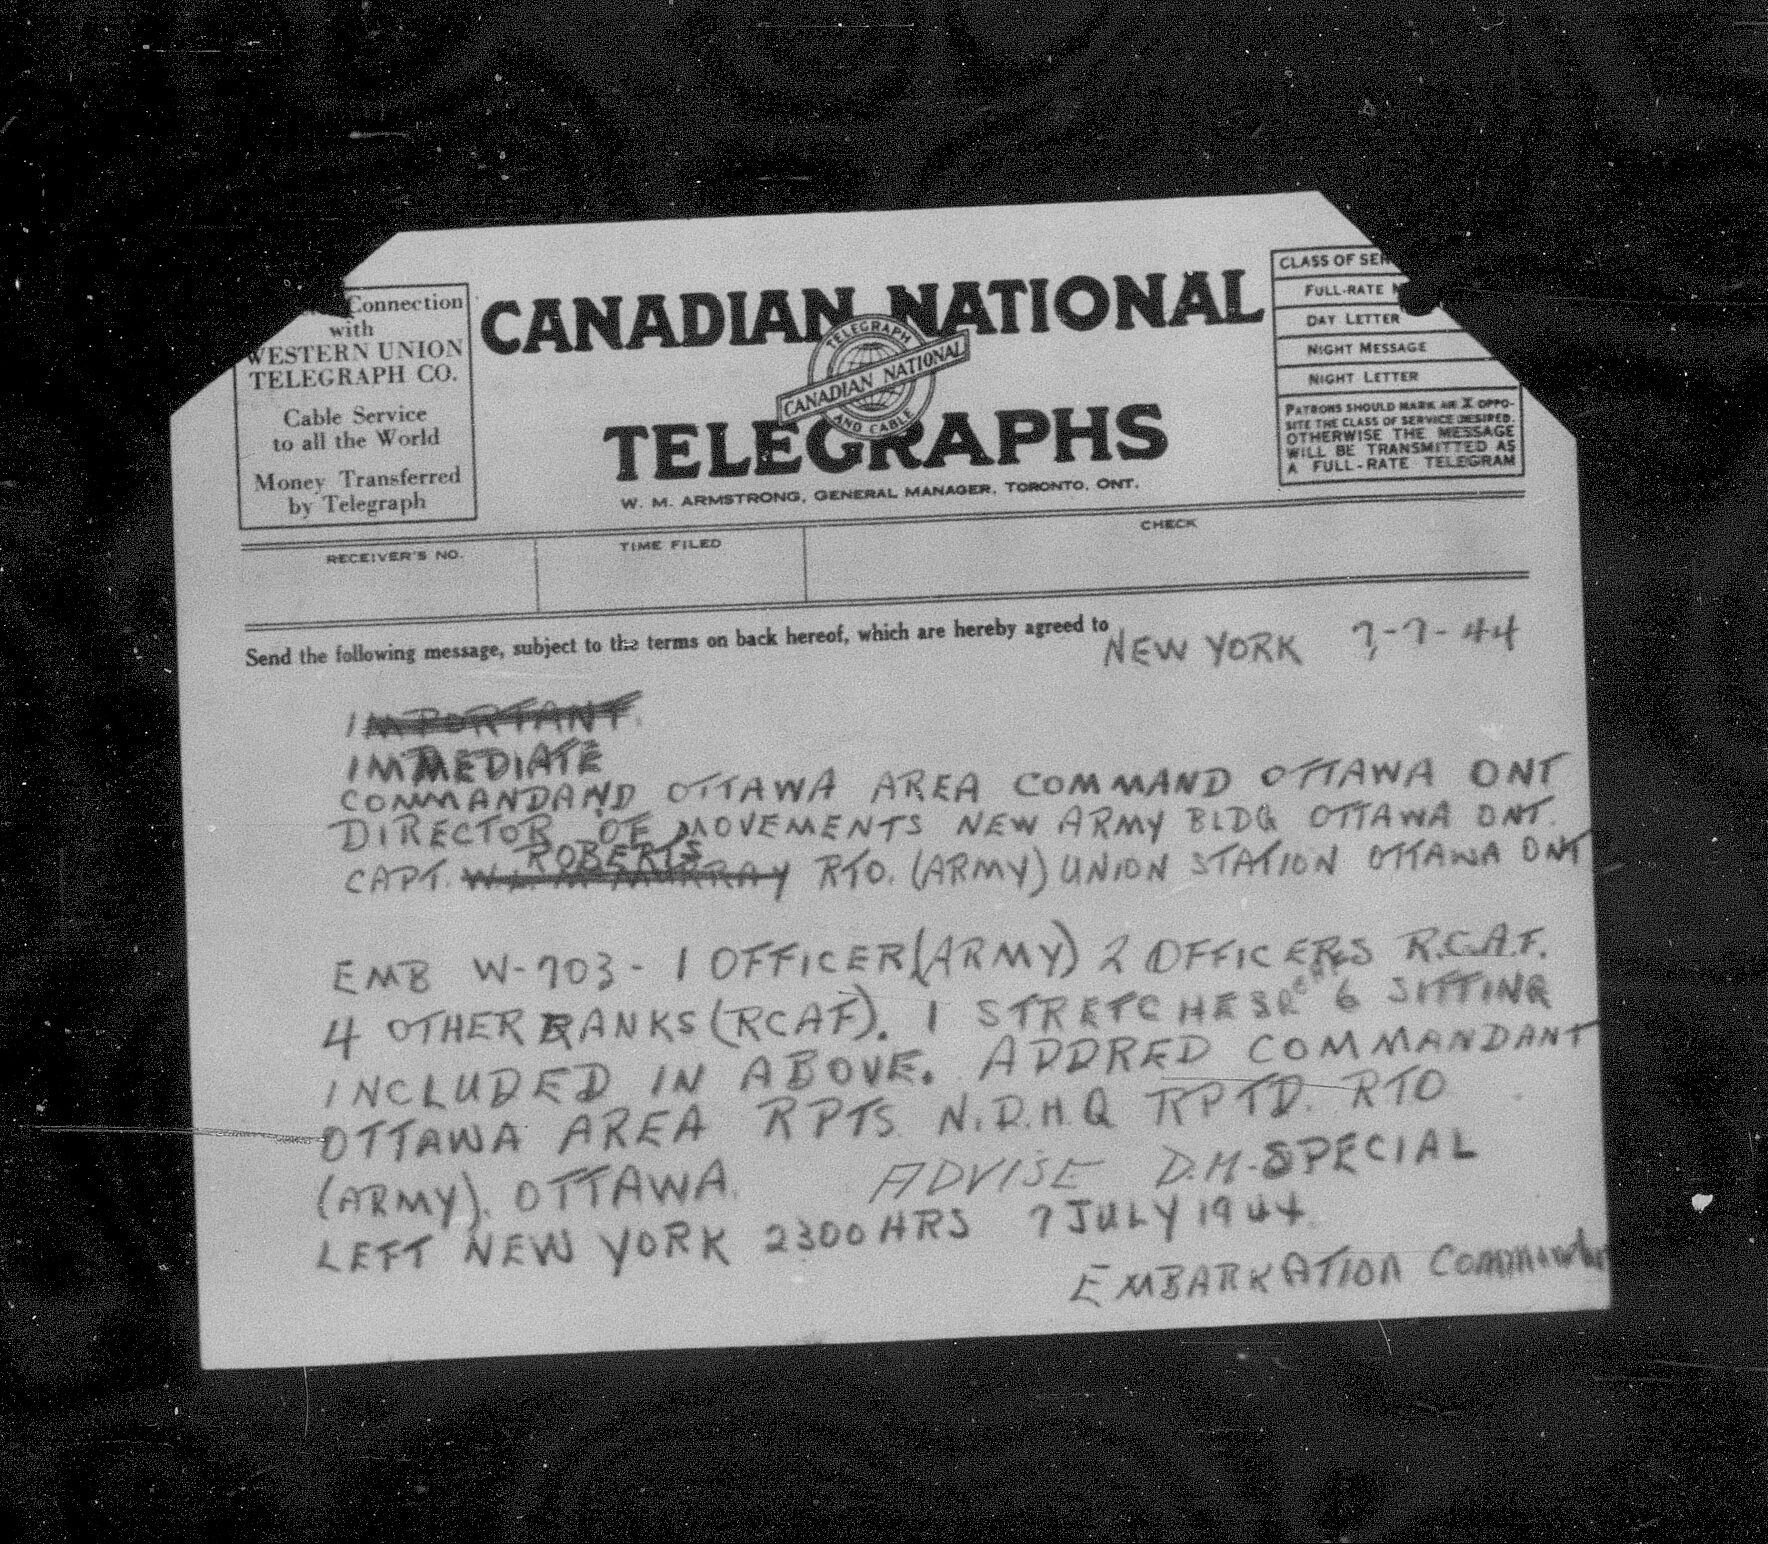 Connection
with
WESTERN UNION
TELEGRAPH CO.
Cable Service
to all the World
Money Transferred
by Telegraph
CANADIAN NATIONAL
TELEGRAPH
CANADIAN NATIONAL
AND CABLE
TELEGRAPHS
W. M. ARMSTRONG, GENERAL MANAGER, TORONTO, ONT.
CLASS OF SER
FULL-RATE M
DAY LETTER
NIGHT MESSAGE
NIGHT LETTER
PATRONS SHOULD MARK AN X OPPO-
SITE THE CLASS OF SERVICE DESIRED.
OTHERWISE THE MESSAGE
WILL BE TRANSMITTED AS
A FULL-RATE TELEGRAM
RECEIVER'S NO.
TIME FILED
CHECK
Send the following message, subject to the terms on back hereof, which are hereby agreed to
NEW YORK 7-7-44
IMPORTANT.
IMMEDIATE
COMMANDAND OTTAWA AREA COMMAND OTTAWA ONT
DIRECTOR OF MOVEMENTS NEW ARMY BLDG OTTAWA ONT.
ROBERTS
CAPT. MURRAY RTO. (ARMY) UNION STATION OTTAWA ONT
EMB W-703 - 1 OFFICER (ARMY) 2 OFFICERS R.C.A.F.
4 OTHER RANKS (RCAF). 1 STRETCHER 6 SITTING
INCLUDED IN ABOVE. ADDRED COMMANDANT
OTTAWA AREA RPTS N.D.H.Q RPTD. RTO
(ARMY). OTTAWA. ADVISE D.M. SPECIAL
LEFT NEW YORK 2300 HRS 7 JULY 1944.
EMBARKATION COMMANDANT